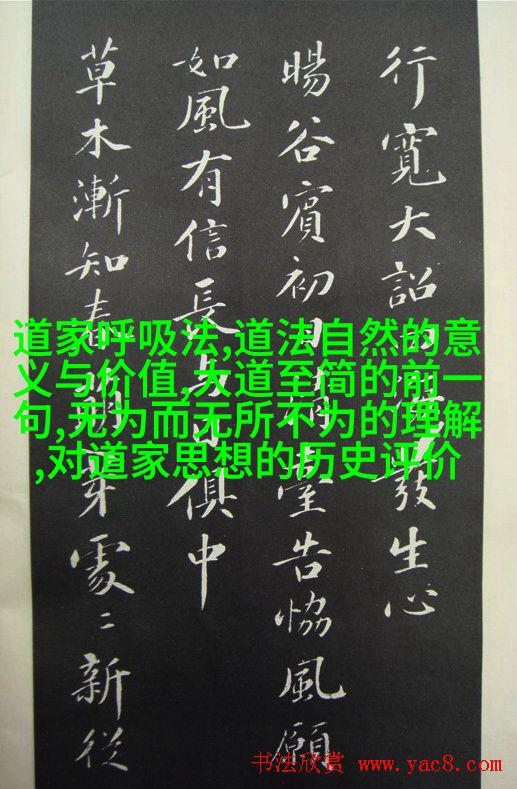 行寬大詔發生心
暘谷賓初日臺告協風願
如風有信長與日俱中
草木漸知春芽處〻新從
道家呼吸法,道法自然的意
义与价值,大道至简的前一
句,无为而无所不为的理解
,对道家思想的历史评价
书法欣赏 www.yac8.com